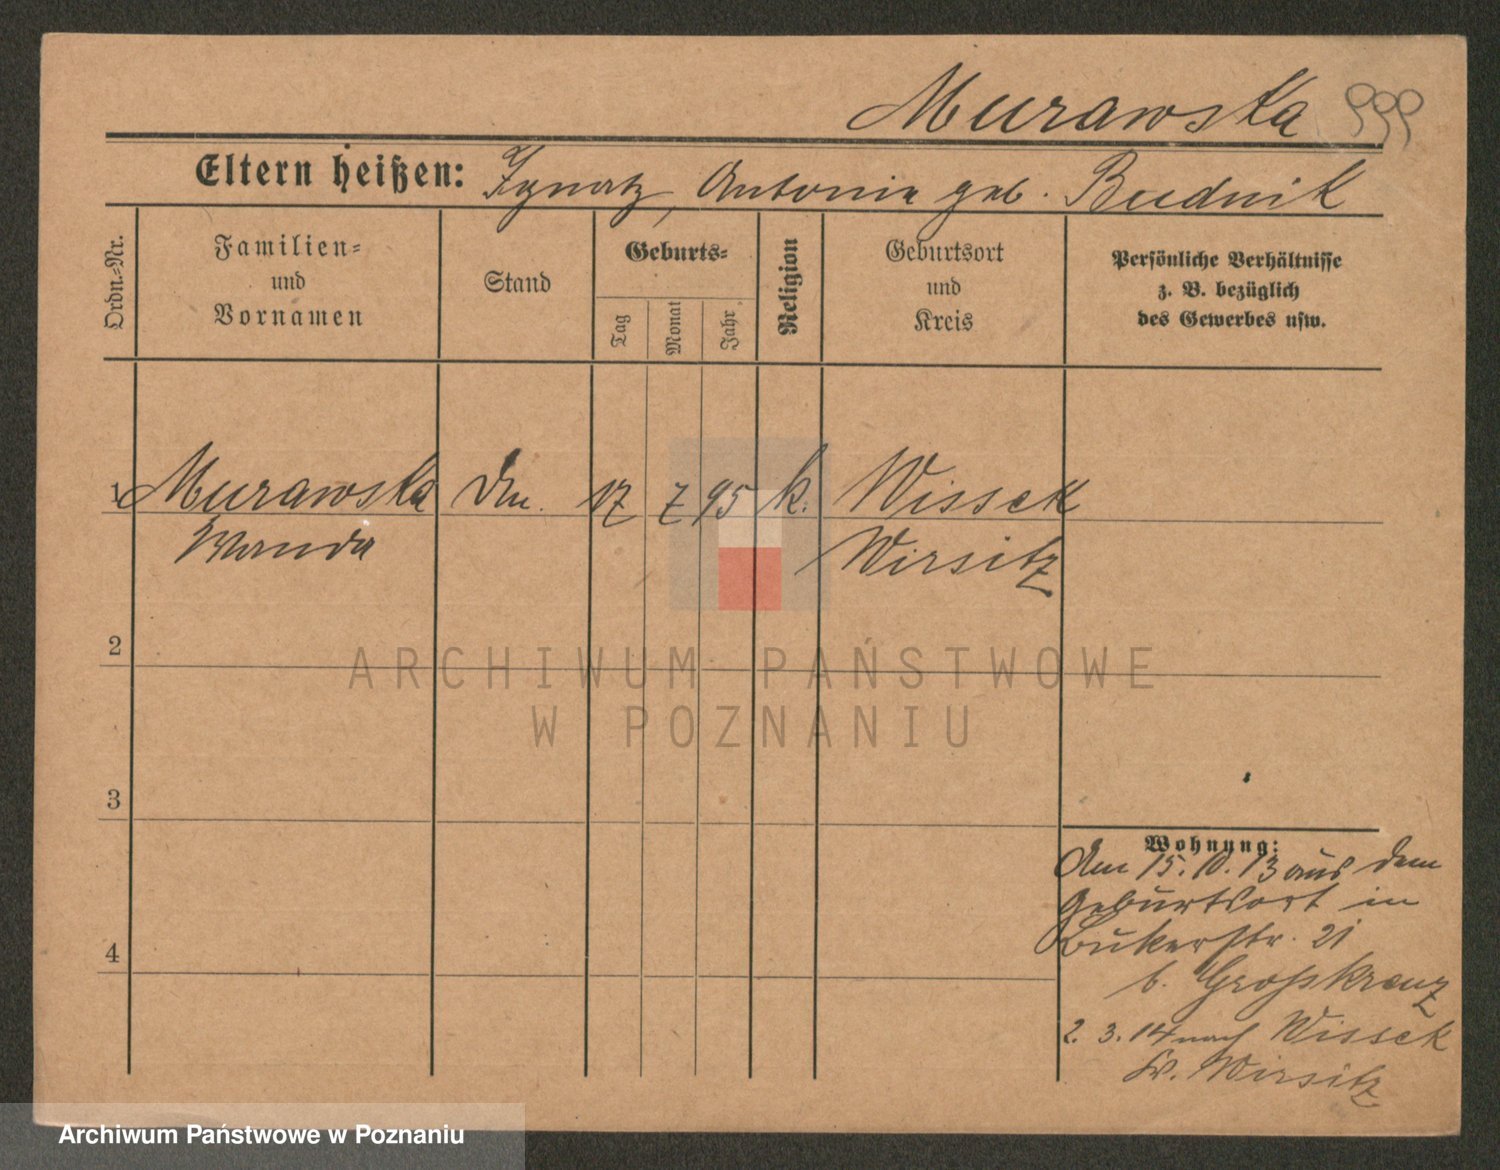 Murawska
Eltern heißen: Ignatz, Antonie geb. Budnik
Ordn.=Nr.
Familien=
und
Vornamen
Stand
Geburts=
Tag
Monat
Jahr
Religion
Geburtsort
und
Kreis
Persönliche Verhältnisse
z. B. bezüglich
des Gewerbes usw.
1 Murawska 17 7 95 k. Wissek
Wanda Wirsitz
2
ARCHIWUM PAŃSTWOWE
W POZNANIU
3
Wohnung:
Am 15.10.13 aus dem
Geburtsort in
Bukerstr. 21
b. Großkreuz
4
2. 3. 14 nach Wissek
Kr. Wirsitz
Archiwum Państwowe w Poznaniu